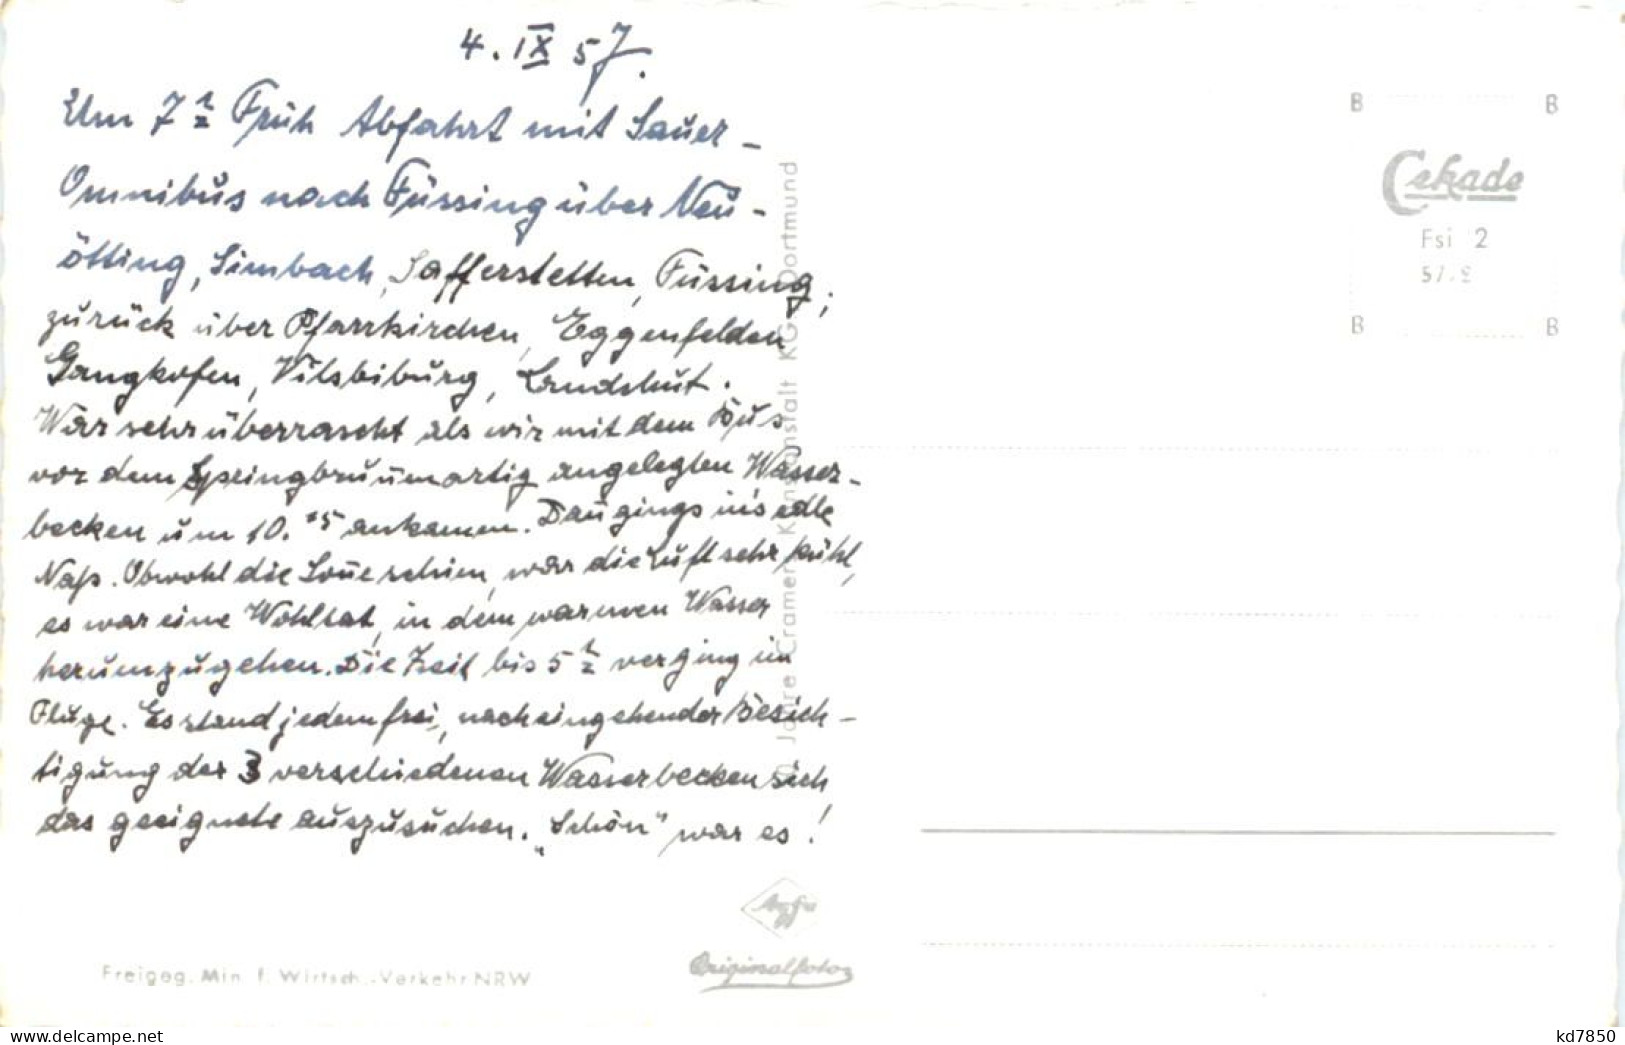 4. IX 57.
Um 7 1/2 Früh Abfahrt mit Sauer-
Omnibus nach Füssing über Neu-
ötting, Simbach, Safferstetten, Füssing;
zurück über Pfarrkirchen, Eggenfelden
Gangkofen, Vilsbiburg, Landshut.
War sehr überrascht als wir mit dem Bus
vor dem Springbrunnenartig angelegten Wasser-
becken um 10.15 ankamen. Dan̄ gings in's edle
Naß. Obwohl die Son̄e schien, war die Luft sehr kühl,
es war eine Wohltat, in dem warmen Wasser
herumzugehen. Die Zeit bis 5 1/2 verging im
Fluge. Es stand jedem frei, nach eingehender Besich-
tigung der 3 verschiedenen Wasserbecken sich
das geeignete auszusuchen. „Schön" war es!
Jahre Cramers Kunstanstalt KG Dortmund
B B
Cekade
Fsi 2
57.9
B B
Agfa
Originalfoto
Freigeg. Min. f. Wirtsch.-Verkehr NRW
www.delcampe.net
kd7850